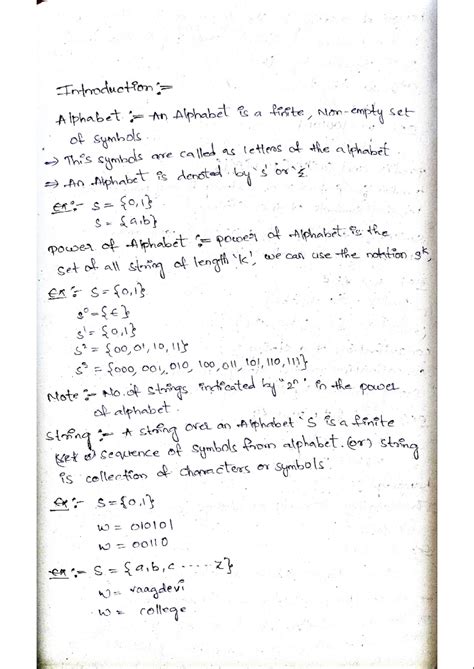 Introduction :-
Alphabet :- An Alphabet is a finite, Non-empty set
of symbols.
→ This symbols are called as letters of the alphabet
⇒ An Alphabet is denoted by 's' or 'Σ'
Ex:- S = {0,1}
S = {a,b}
power of Alphabet :- power of Alphabet is the
set of all string of length 'k', we can use the notation s^k,
Ex :- S = {0,1}
s⁰ = {ϵ}
s¹ = {0,1}
s² = {00, 01, 10, 11}
= {000, 001, 010, 100, 011, 101, 110, 111}
Note :- No. of strings indicated by "2ⁿ" in the power
of alphabet.
String :- A string over an Alphabet 'S' is a finite
sequence of symbols from alphabet. (or) string
is collection of characters or symbols.
Ex :- S = {0,1}
w = 010101
w = 00110
Ex :- S = {a, b, c ..... z}
w = vaagdevi
w = college